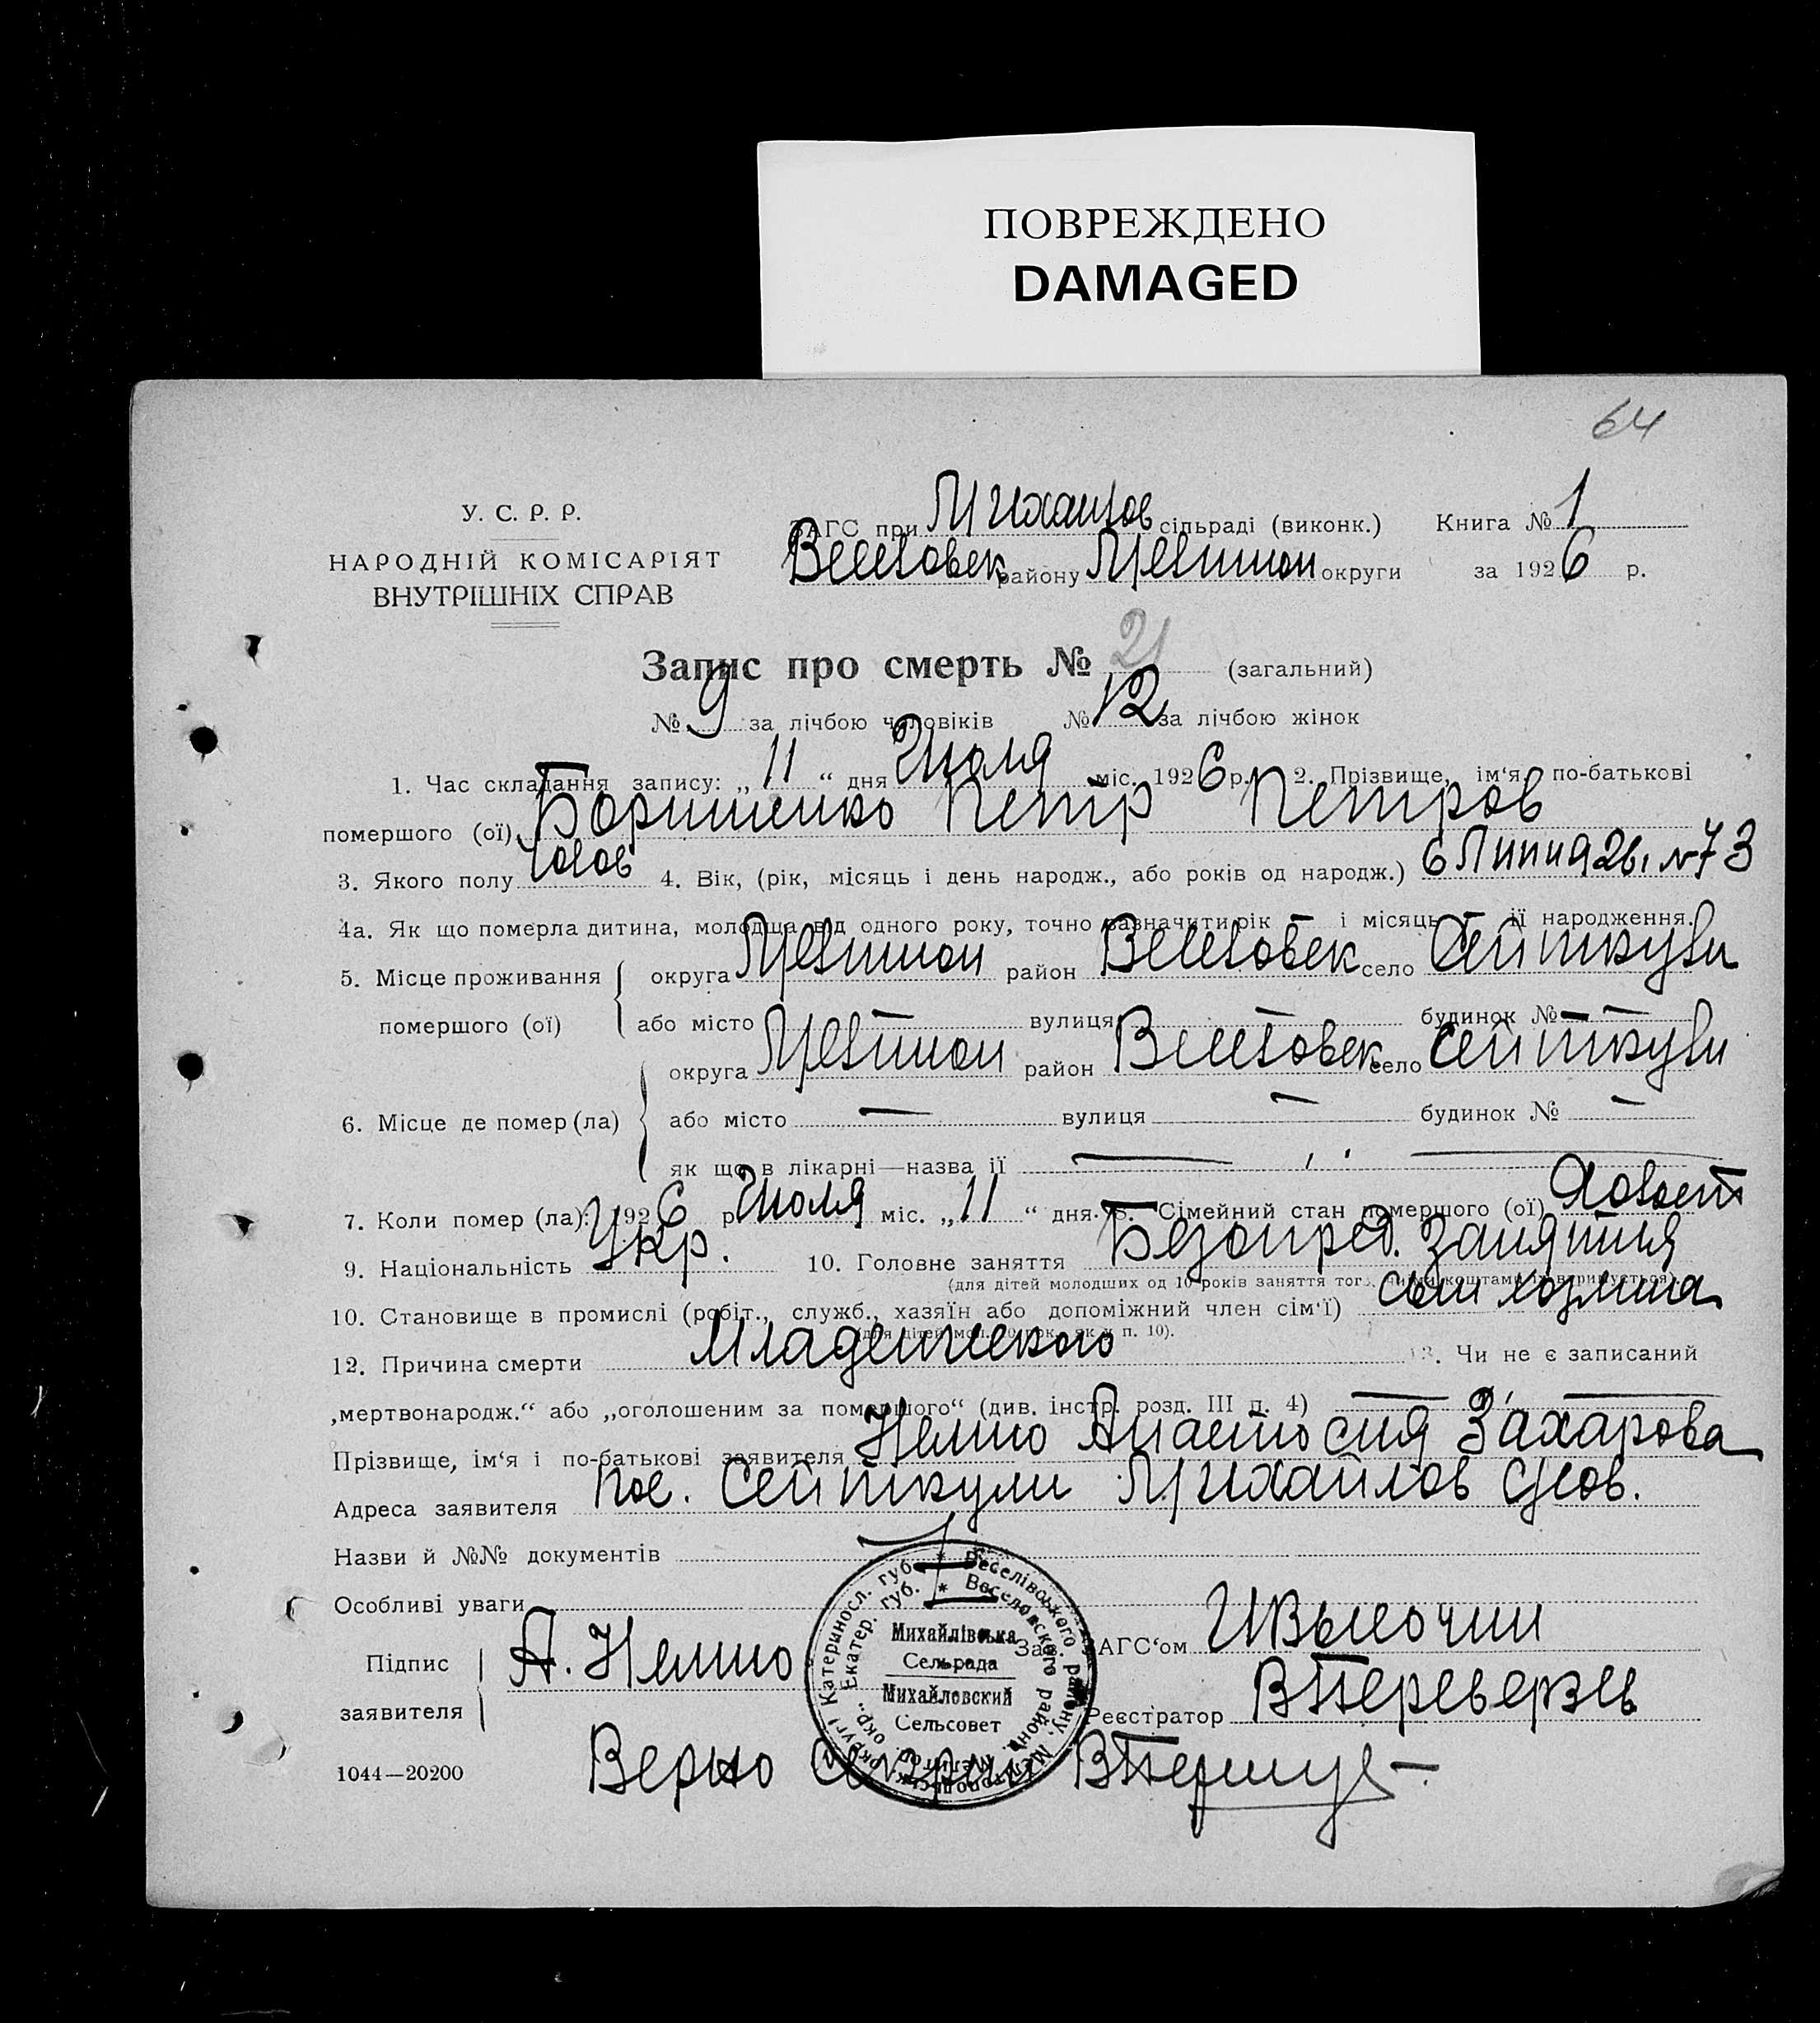 ПОВРЕЖДЕНО
DAMAGED
64
У. С. Р. Р.
НАРОДНІЙ КОМІСАРІЯТ
ВНУТРІШНІХ СПРАВ
ЗАГС при Михайлов сільраді (виконк.) Книга № 1
Веселовск району Мелитоп округи за 1926 р.
Запис про смерть № 21 (загальний)
№ 9 за лічбою чоловіків № 12 за лічбою жінок
1. Час складання запису: „11“ дня Июля міс. 1926 р. 2. Прізвище, ім'я, по-батькові
помершого (ої) Петр Петров
3. Якого полу Чолов 4. Вік, (рік, місяць і день народж., або років од народж.) 6 Липня 26. № 73
4а. Як що померла дитина, молодща від одного року, точно зазначити рік — і місяць — її народження.
5. Місце проживання округа Мелитоп район Веселовск село Сейткули
помершого (ої) або місто — вулиця — будинок № —
округа Мелитоп район Веселовск село Сейткули
6. Місце де помер (ла) або місто — вулиця — будинок № —
як що в лікарні—назва її —
7. Коли помер (ла): 1926 р Июля міс. „11“ дня. 8. Сімейний стан помершого (ої) Холост
9. Національність Укр. 10. Головне заняття Без опред. занятия
(для дітей молодших од 10 років заняття того, чиїми коштами утримується)
10. Становище в промислі (робіт., служб., хазяїн або допоміжний член сім'ї) сын
(для дітей мол. 10 рок. як у п. 10).
12. Причина смерти Младенческого 13. Чи не є записаний
„мертвонародж.“ або „оголошеним за помершого“ (див. інстр. розд. III п. 4) —
Прізвище, ім'я і по-батькові заявителя Анастосия Захарова
Адреса заявителя пос. Сейткули Михайлов
Назви й №№ документів
Особливі уваги
Підпис А.
заявителя
Зав. ЗАГС'ом
Реєстратор В Переверзев
Катериносл. губ. * Веселівського району, Мелітопільськ. округи
Екатер. губ. * Веселовского района, Мелитоп. окр.
Михайлівська
Сельрада
Михайловский
Сельсовет
1044—20200 Верно